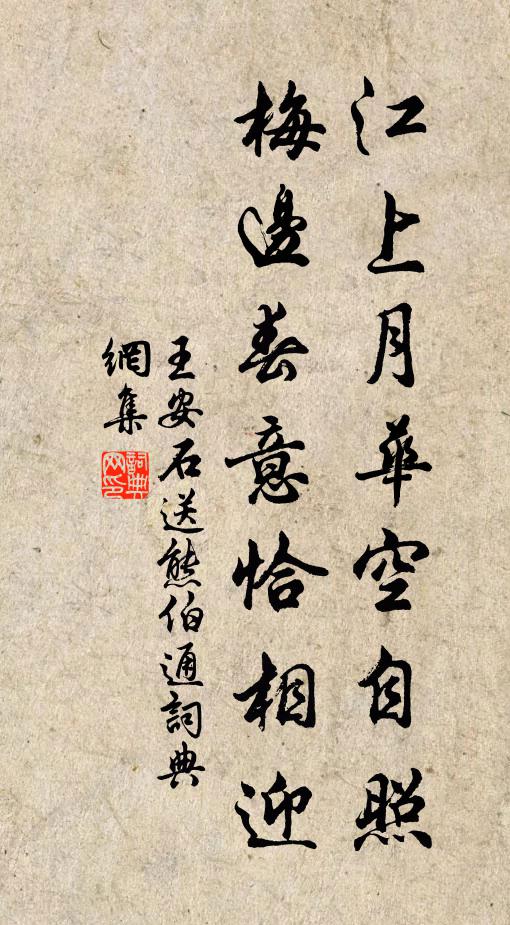 江上月華空自照
梅邊春意恰相迎
王安石送熊伯通詞典
網集
詞典
网印